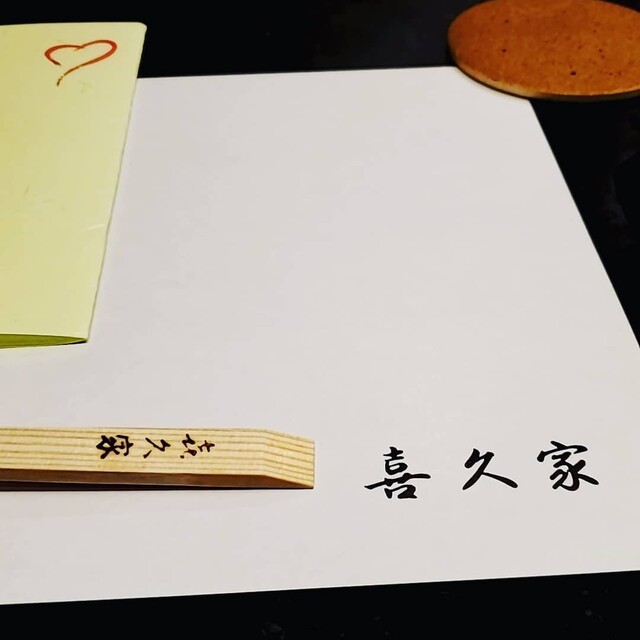 喜久家
喜久家